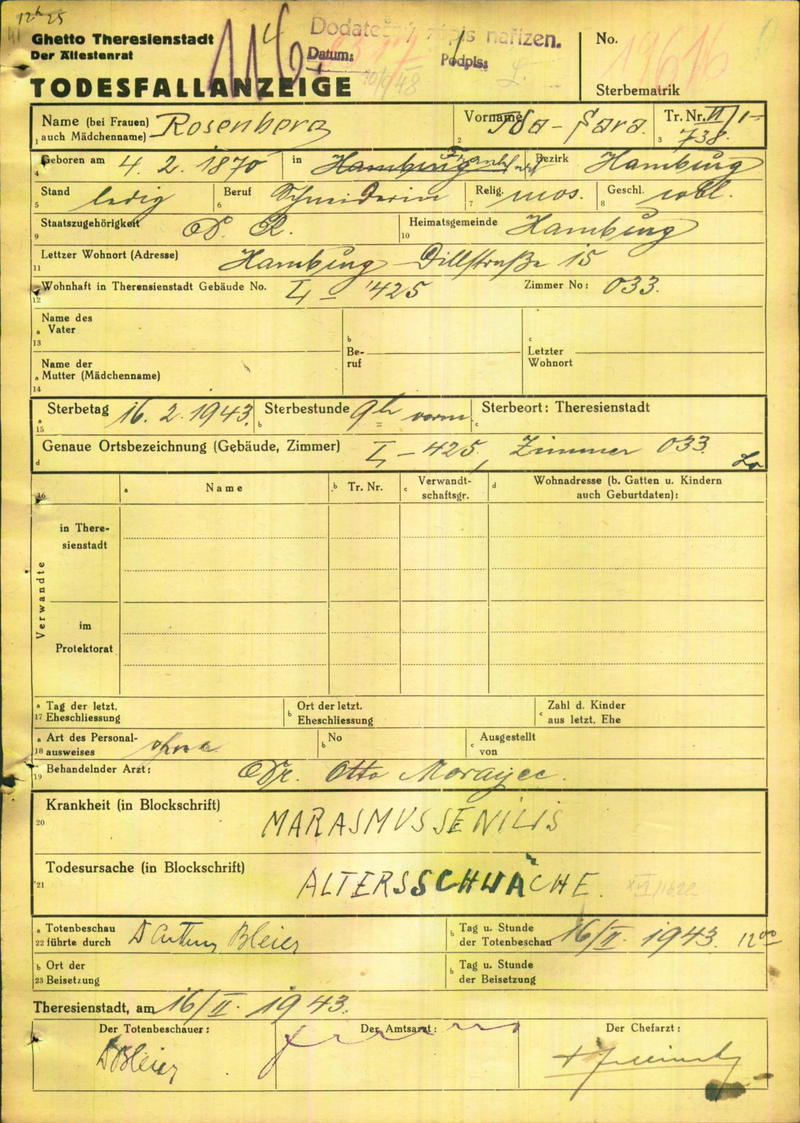 12h 25
Ghetto Theresienstadt
Der Ältestenrat
116
Dodatečný zápis nařízen.
Datum:
Podpis:
No. 19616
TODESFALLANZEIGE
Sterbematrik
Name (bei Frauen) Rosenberg Vorname Ida - Sara. Tr. Nr. VI/1-
1 auch Mädchenname) 2 3 738.
Geboren am 4. 2. 1870 in Hamburg Bezirk Hamburg
4
Stand ledig Beruf Schneiderin Relig. mos. Geschl. weibl.
5 6 7 8
Staatszugehörigkeit D. R. Heimatsgemeinde Hamburg
9 10
Lettzer Wohnort (Adresse) Hamburg Dillstraße 15
11
Wohnhaft in Therensienstadt Gebäude No. L - 425 Zimmer No: 033.
12
Name des
a Vater
13
b Be-
ruf
c Letzter
Wohnort
Name der
a Mutter (Mädchenname)
14
a Sterbetag 16. 2. 1943. b Sterbestunde 9h vorm. c Sterbeort: Theresienstadt
15
d Genaue Ortsbezeichnung (Gebäude, Zimmer) L - 425, Zimmer 033.
16 a Name b Tr. Nr. c Verwandt-
schaftsgr. d Wohnadresse (b. Gatten u. Kindern
auch Geburtdaten):
Verwandte
in There-
sienstadt
im
Protektorat
a Tag der letzt.
17 Eheschliessung
b Ort der letzt.
Eheschliessung
c Zahl d. Kinder
aus letzt. Ehe
a Art des Personal-
18 ausweises ohne
b No
c Ausgestellt
von
19 Behandelnder Arzt: Dr. Otto
Krankheit (in Blockschrift)
20 MARASMUS SENILIS
Todesursache (in Blockschrift)
21 ALTERSSCHWÄCHE.
a Totenbeschau
22 führte durch Dr Arthur Bleier
b Tag u. Stunde
der Totenbeschau 16/II. 1943. 12 00
b Ort der
23 Beisetzung
b Tag u. Stunde
der Beisetzung
Theresienstadt, am 16/II. 1943.
Der Totenbeschauer: Der Amtsarzt: Der Chefarzt:
Dr Bleier